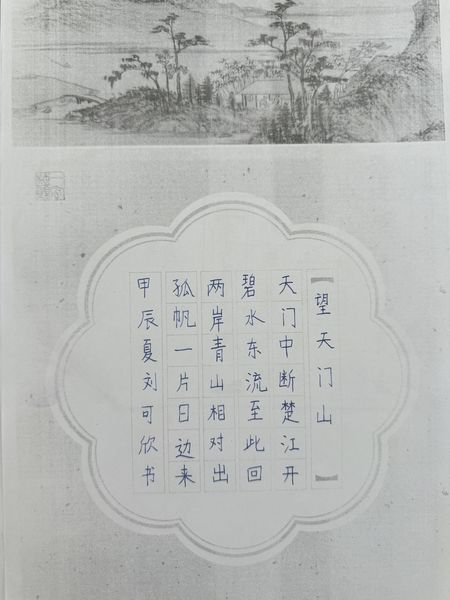 【望天门山】
天门中断楚江开
碧水东流至此回
两岸青山相对出
孤帆一片日边来
甲辰夏刘可欣书